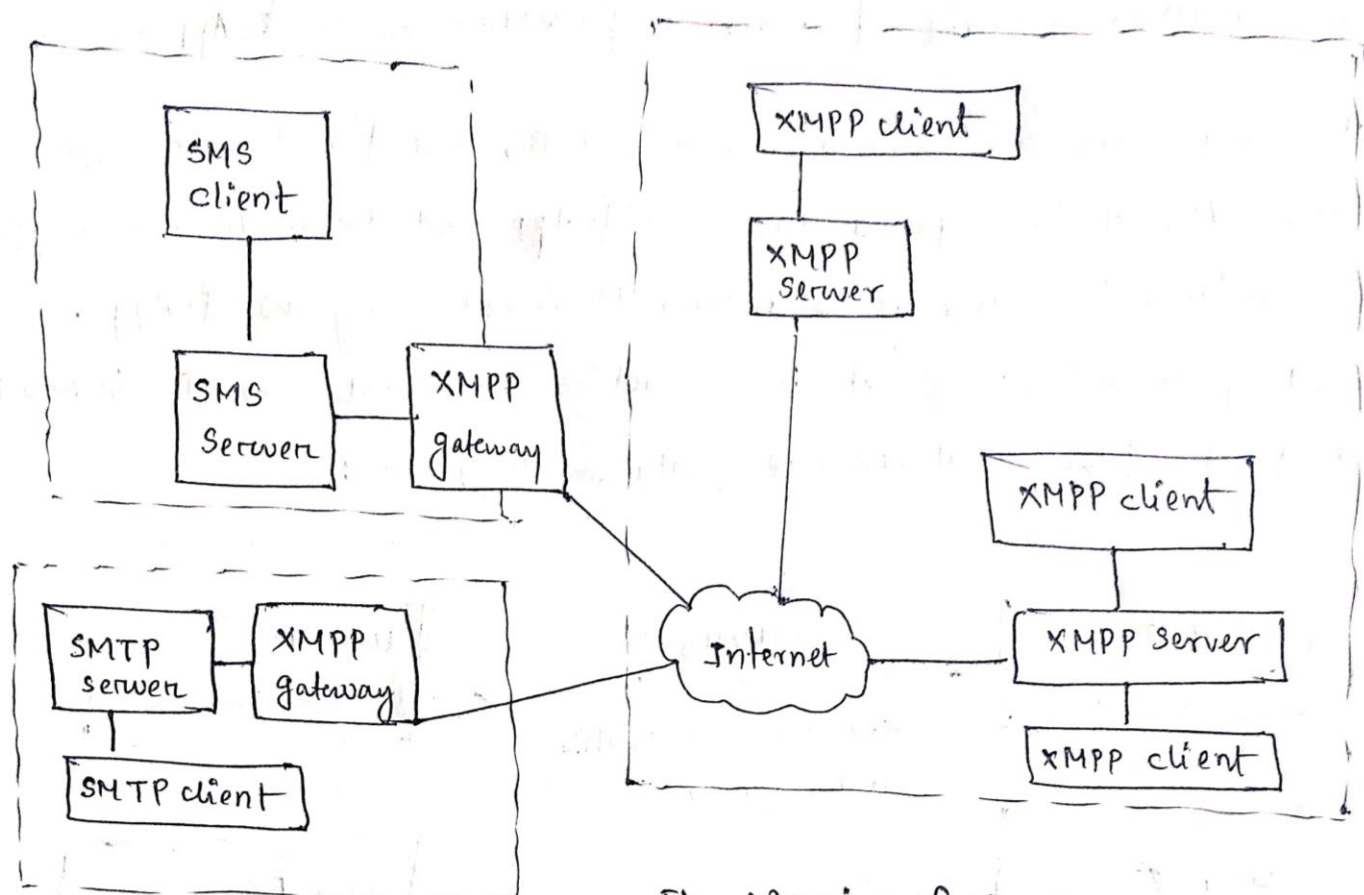 SMS
client
SMS
Server
XMPP
gateway
XMPP client
XMPP
Server
XMPP client
XMPP Server
XMPP client
Internet
SMTP
server
XMPP
gateway
SMTP client